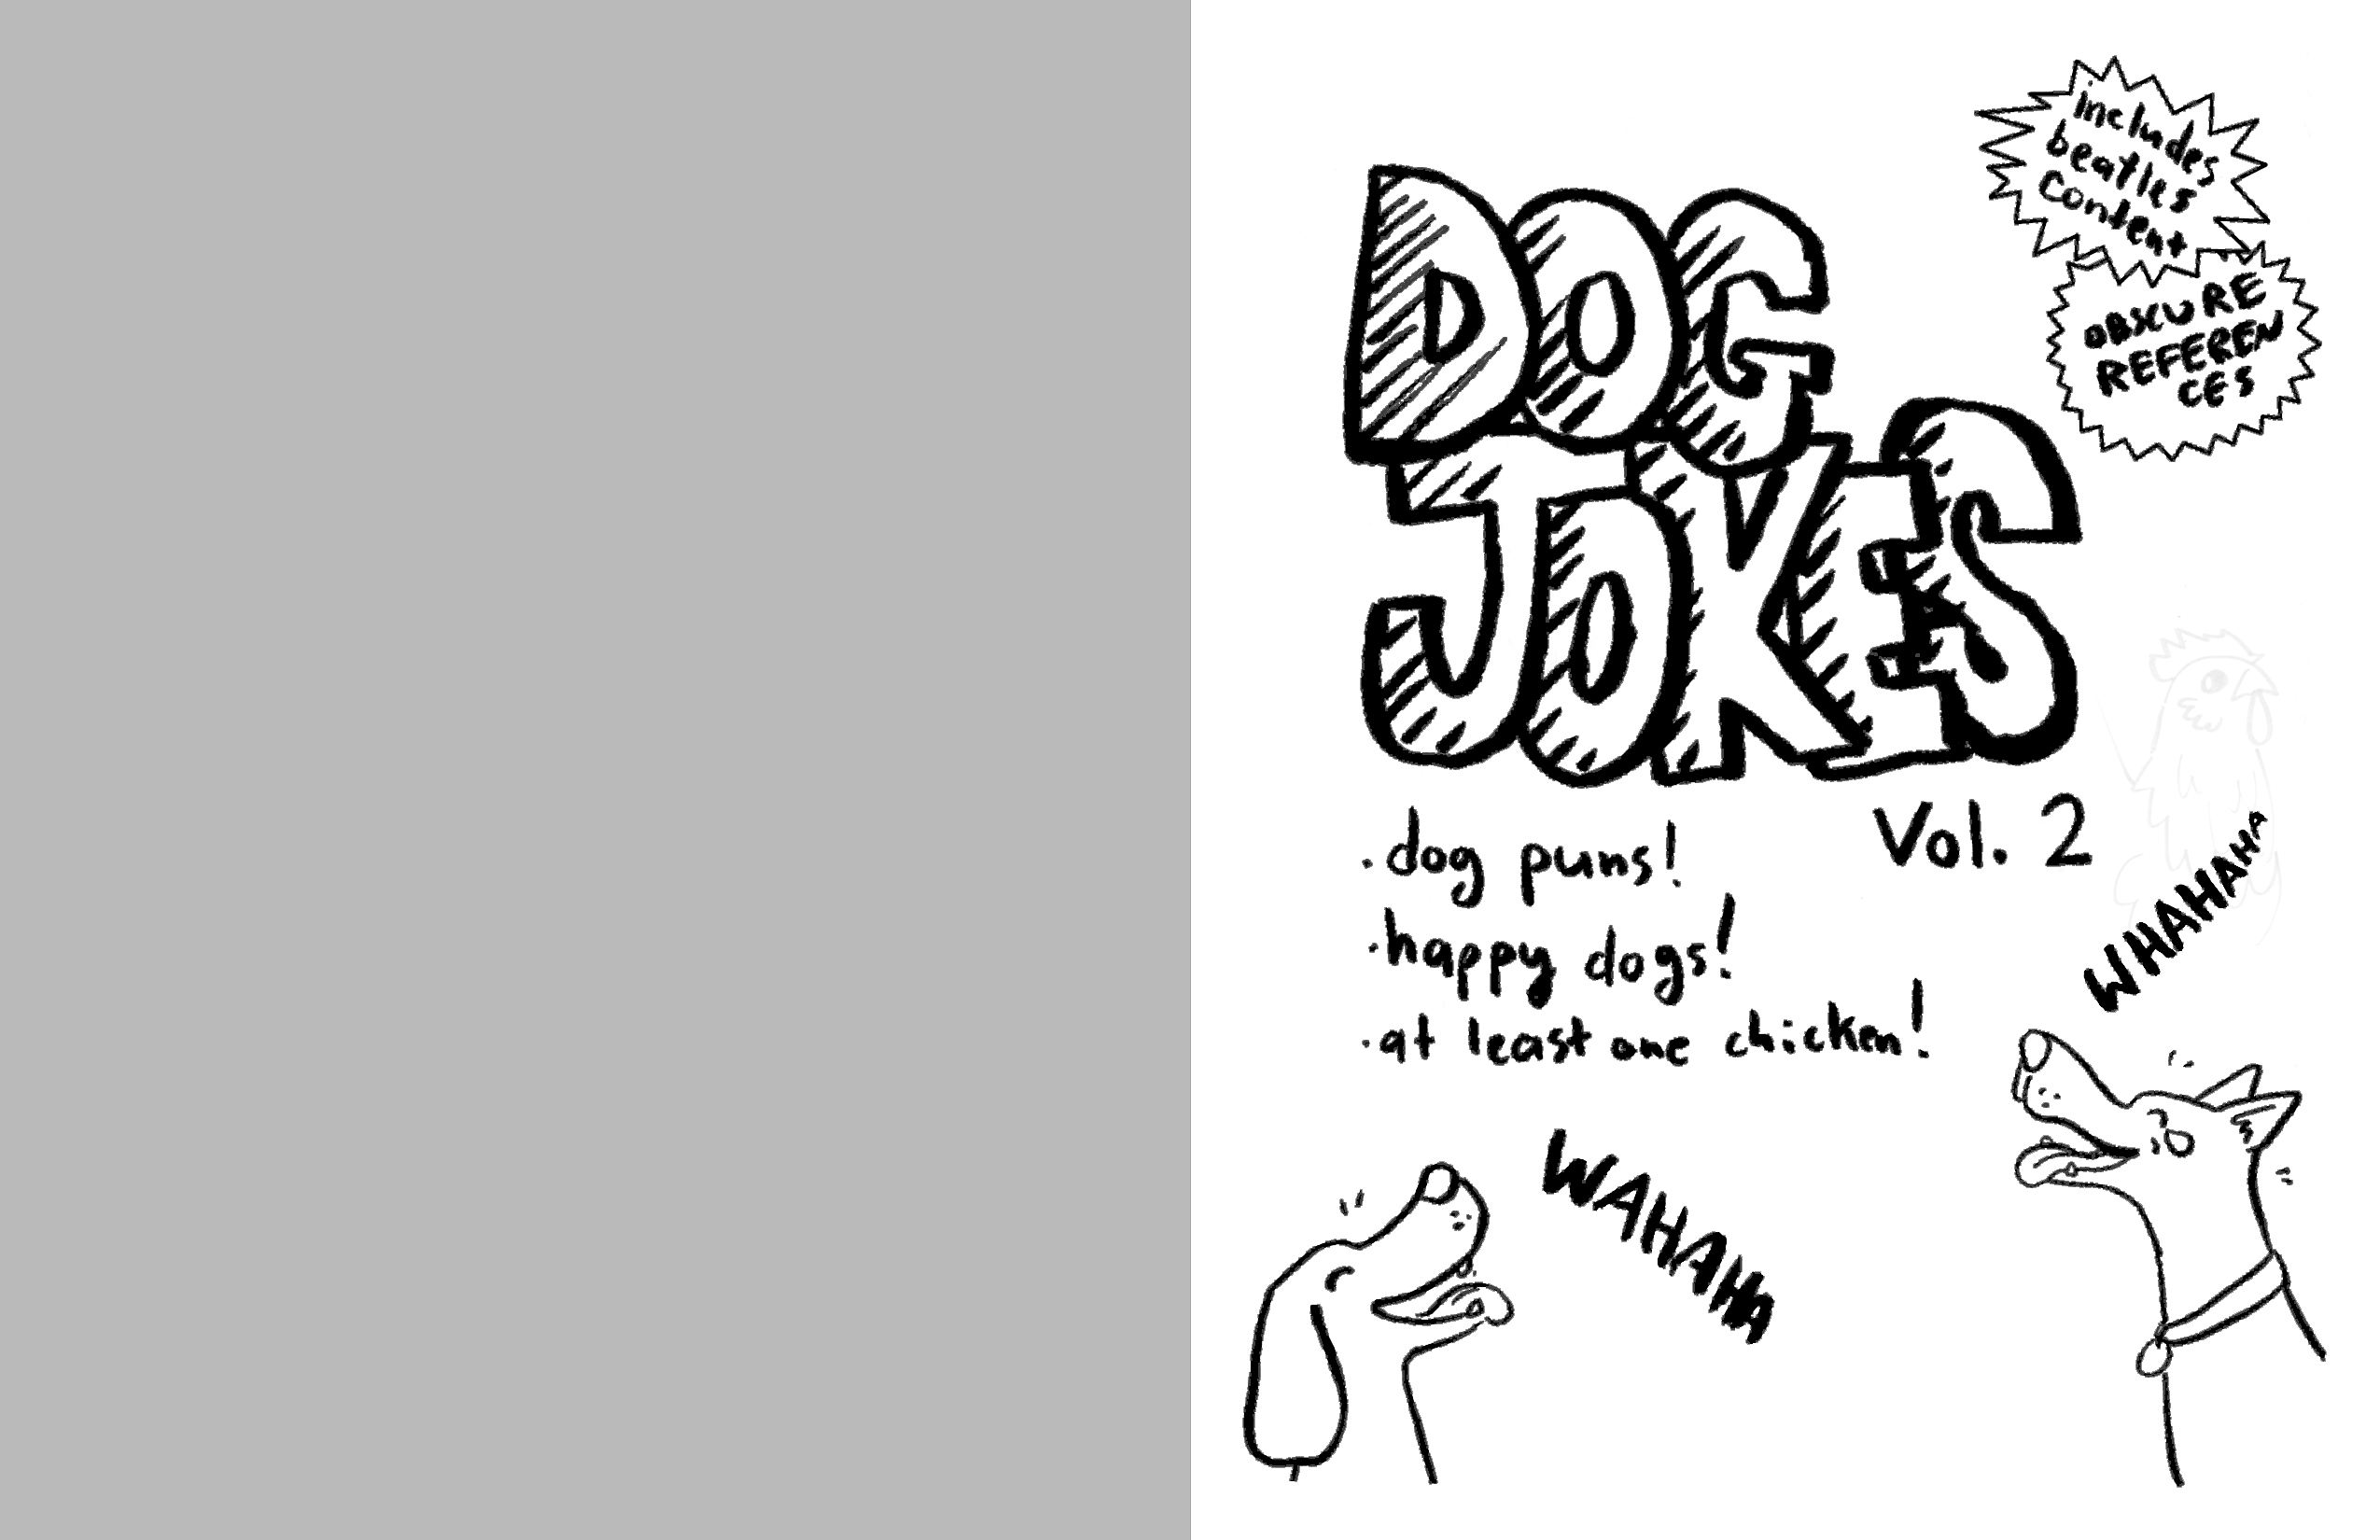 includes
beatles
content
OBSCURE
REFEREN
CES
DOG
JOKES
Vol. 2
· dog puns!
· happy dogs!
· at least one chicken!
WHAHAHA
WAHAHAHA